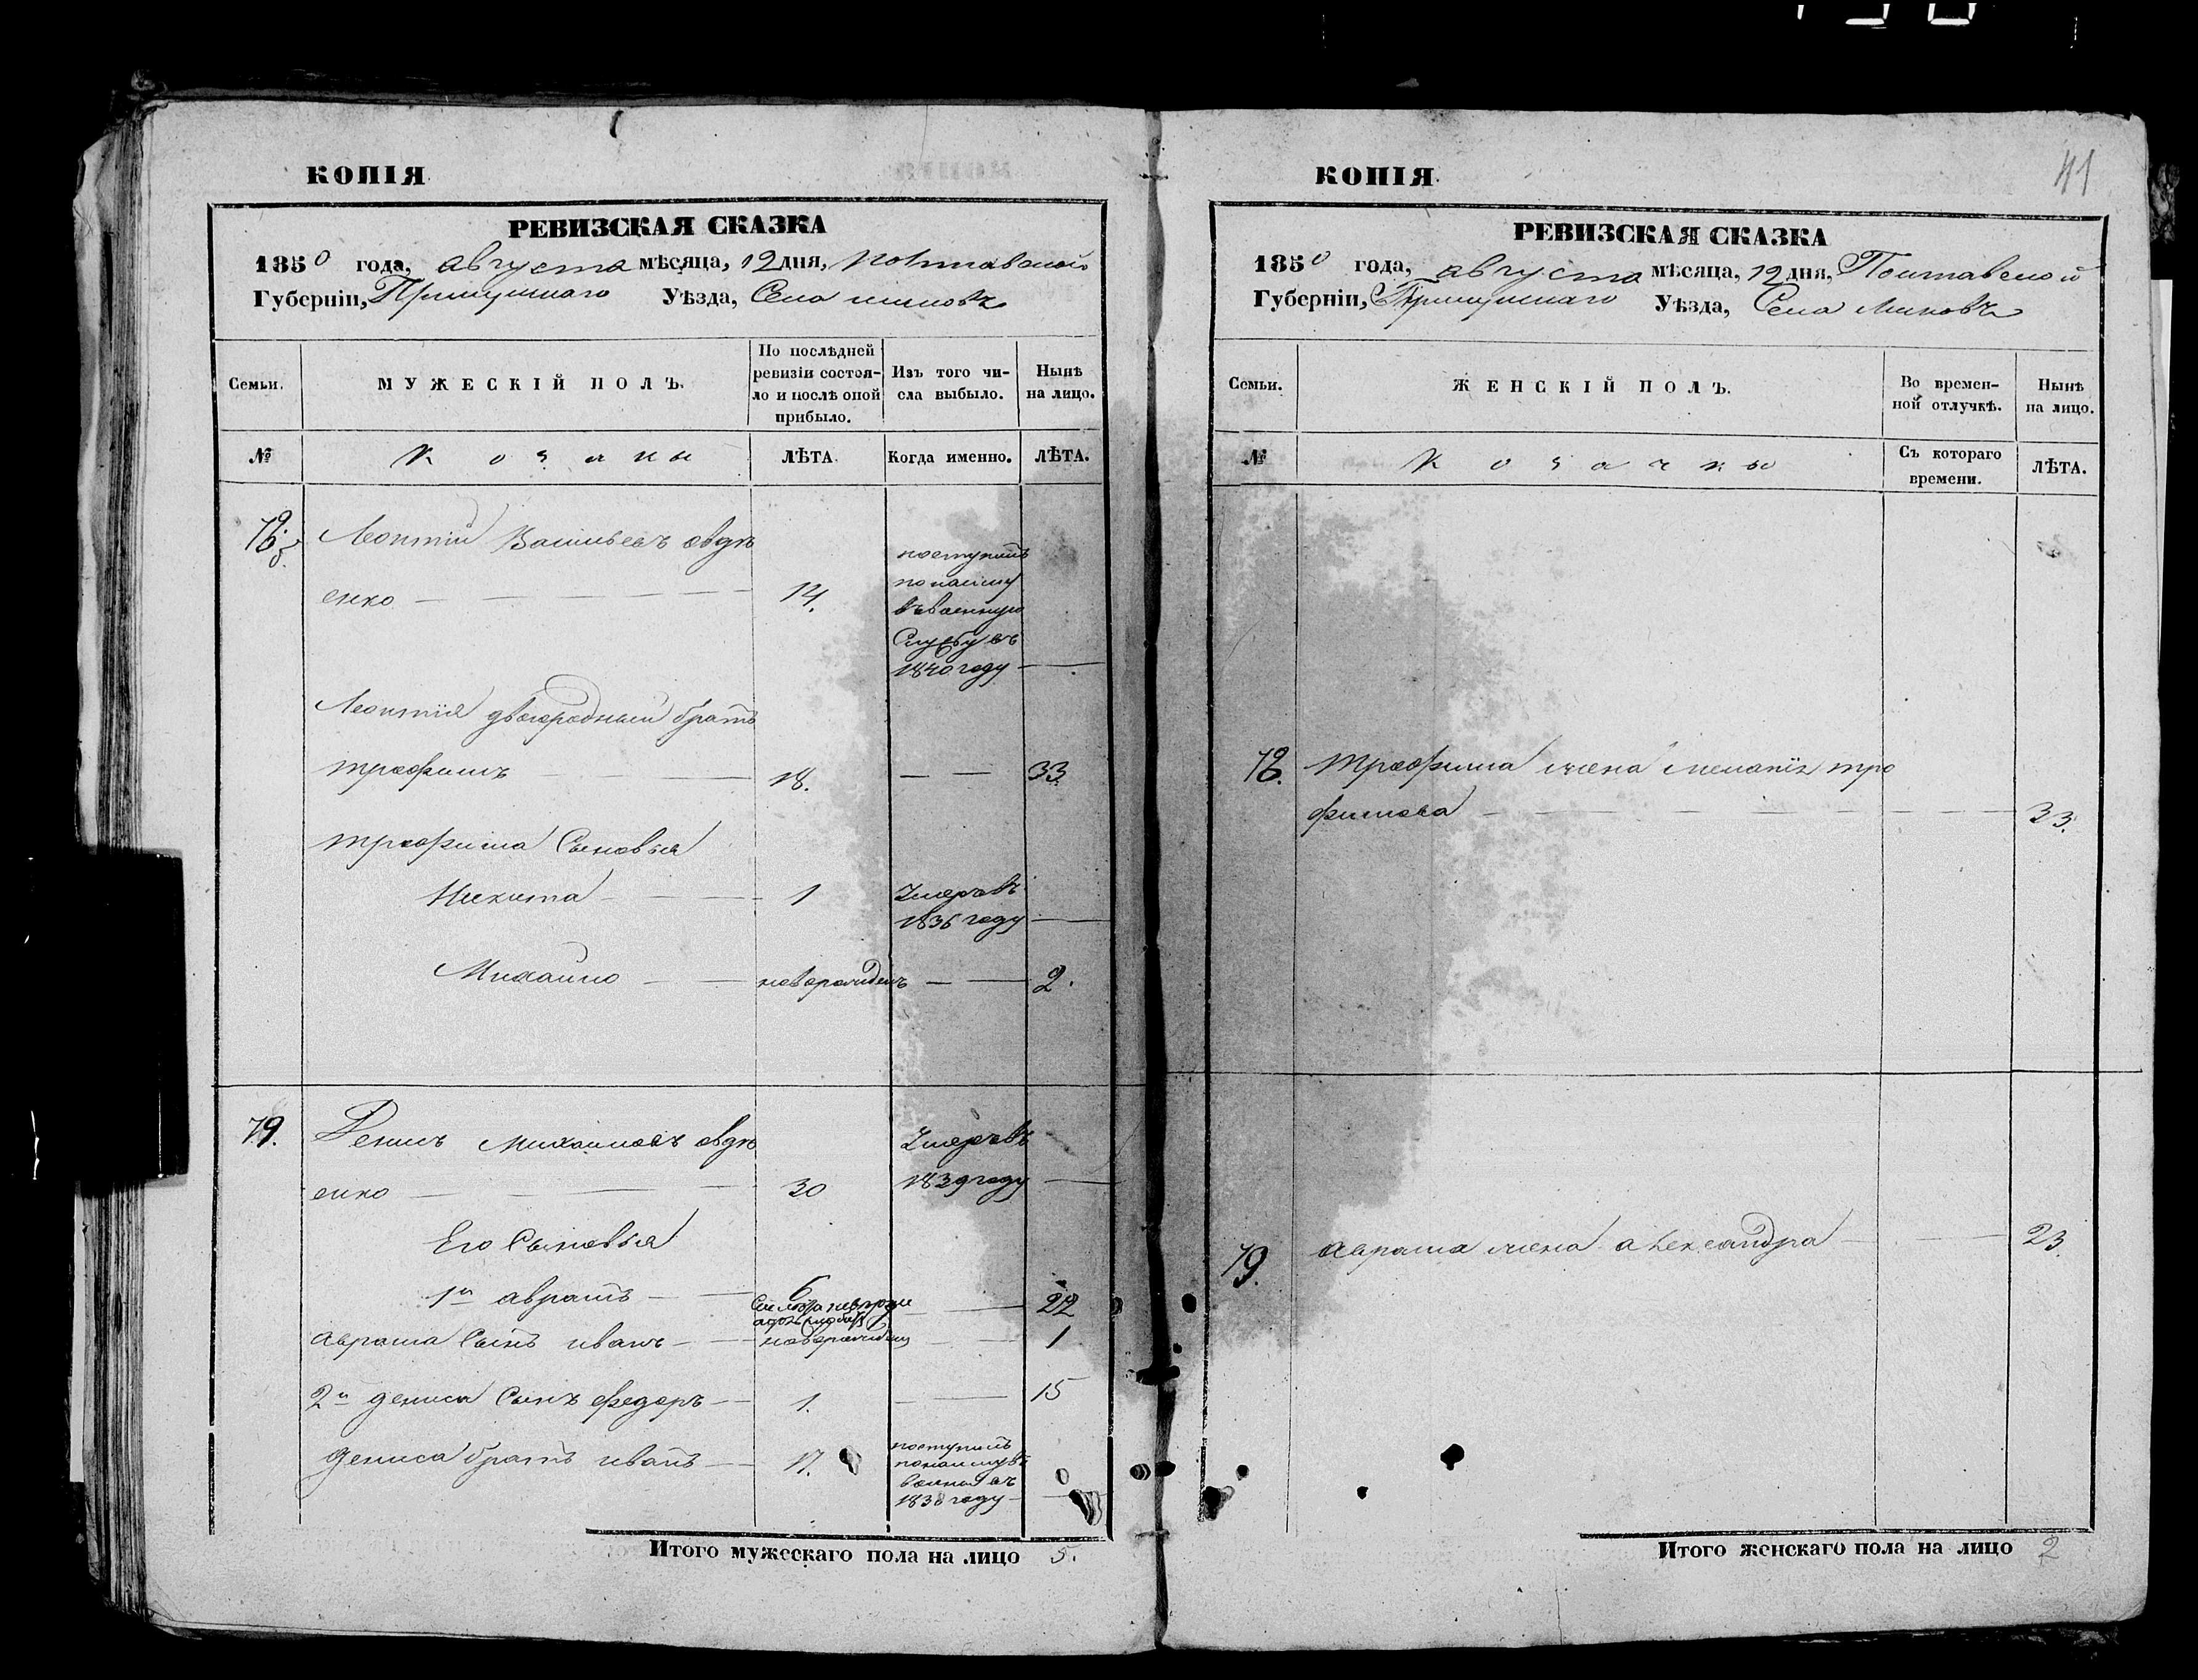 КОПІЯ
РЕВИЗСКАЯ СКАЗКА
1850 года, августа мѣсяца, 12 дня, Полтавской
Губерніи, Прилуцкаго Уѣзда, Села
Семьи. МУЖЕСКІЙ ПОЛЪ. По послѣдней ревизіи состояло и послѣ оной прибыло. Изъ того числа выбыло. Нынѣ на лицо.
№ Козаки ЛѢТА Когда именно. ЛѢТА.
78. Леонтій Васильевъ овдѣ
енко 14. поступилъ
по найму
въ военную
Службу въ
1840 году
Леонтія двоюродный братъ
трофимъ 18. 33
трофима Сыновья
Никита 1 Умеръ въ
1836 году
Михайло новорожденъ 2.
79. Денисъ Михайловъ овдѣ Умеръ въ
енко 30 1839 году
Его Сыновья
1й аврамъ 6 22
аврама Сынъ иванъ новорожденъ 1
2й дениса Сынъ федоръ 1. 15
дениса братъ иванъ 17. поступилъ
по найму въ
1838 году
Итого мужескаго пола на лицо 5.
КОПІЯ
41
РЕВИЗСКАЯ СКАЗКА
1850 года, августа мѣсяца, 12 дня, Полтавской
Губерніи, Прилуцкаго Уѣзда, Села
Семьи. ЖЕНСКІЙ ПОЛЪ. Во временной отлучкѣ. Нынѣ на лицо.
№ Козачки Съ котораго времени. ЛѢТА.
78. трофима жена меланія тро
фимова 33.
79. аврама жена александра 23.
Итого женскаго пола на лицо 2